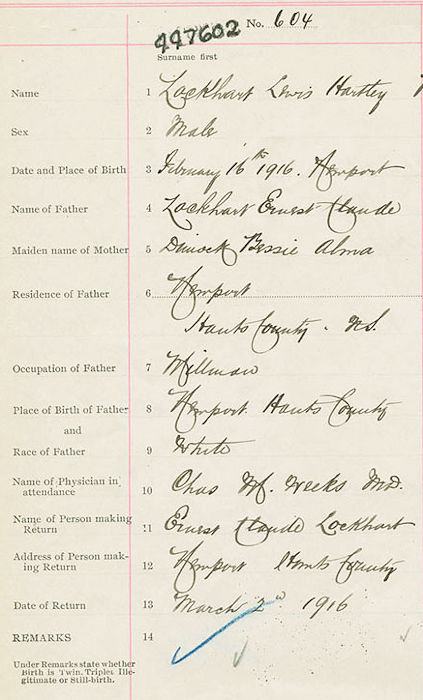 No. 604
447602
Surname first
Name 1 Lockhart Lewis Hartley
Sex 2 Male
Date and Place of Birth 3 February 16th 1916. Newport
Name of Father 4 Lockhart Ernest Claude
Maiden name of Mother 5 Dimock Bessie Alma
Residence of Father 6 Newport
Hants County. N.S.
Occupation of Father 7 Millman
Place of Birth of Father 8 Newport Hants County
and
Race of Father 9 White
Name of Physician in
attendance 10 Chas W. Weeks M.D.
Name of Person making
Return 11 Ernest Claude Lockhart
Address of Person mak-
ing Return 12 Newport Hants County
Date of Return 13 March 2nd 1916
REMARKS 14
Under Remarks state whether
Birth is Twin, Triplet Ille-
gitimate or Still-birth.